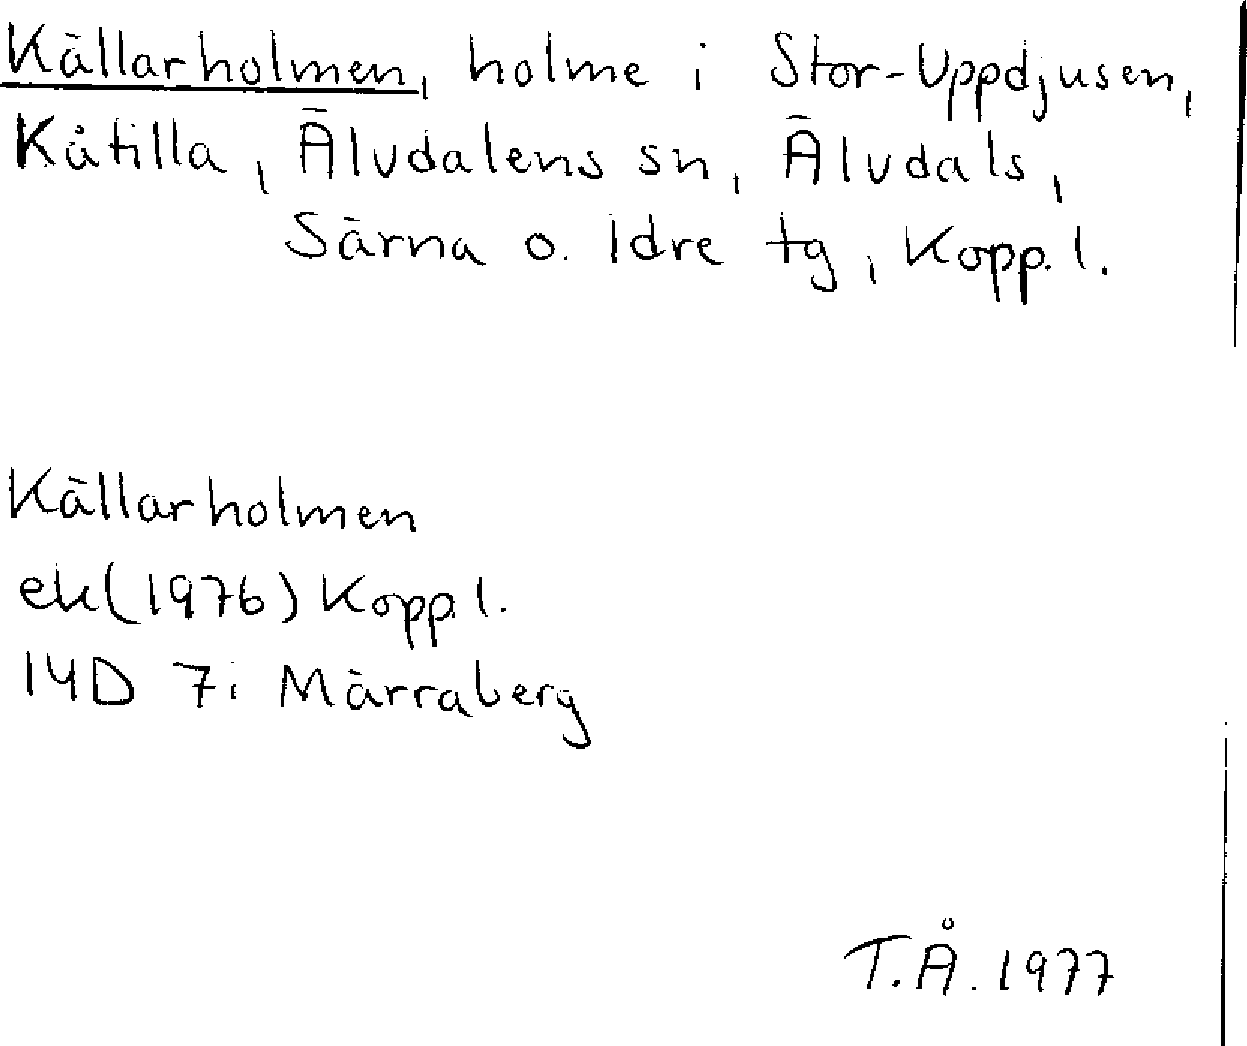 Källarholmen, holme i Stor-Uppdjusen,
Kåtilla, Älvdalens sn, Älvdals,
Särna o. Idre tg, Kopp. l.
Källarholmen
ek(1976) Kopp. l.
14D 7i Märraberg
T.Å. 1977